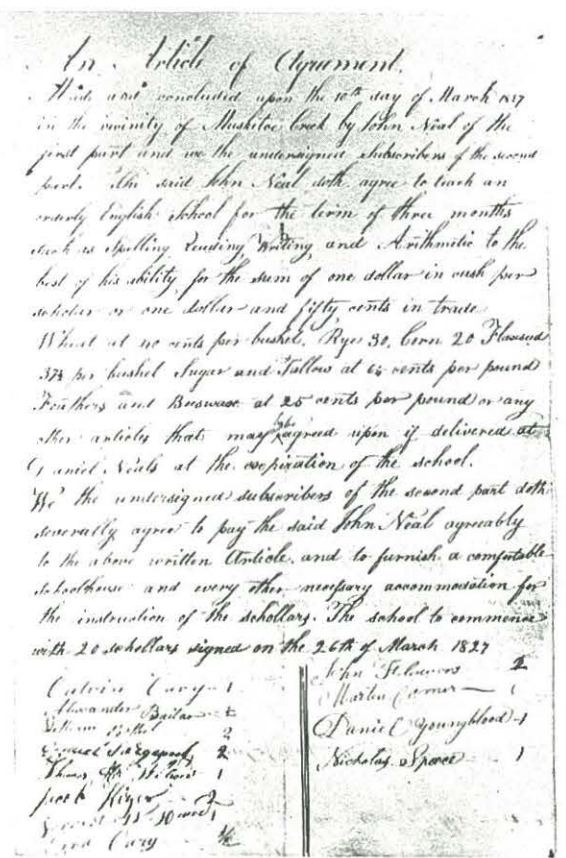 An Article of Agreement.
Made and concluded upon the 10th day of March 1827
in the vicinity of Muskitoe Creek by John Neal of the
first part and we the undersigned Subscribers of the second
part. The said John Neal doth agree to teach an
orderly English School for the term of three months
such as Spelling Reading Writing and Arithmitic to the
best of his ability for the sum of one dollar in cash per
scholar or one dollar and fifty cents in trade
Wheat at 40 cents per bushel, Rye 30, Corn 20 Flaxseed
37½ per bushel Sugar and Tallow at 6¼ cents per pound
Feathers and Beeswax at 25 cents per pound or any
other articles that may be agreed upon if delivered at
Daniel Neals at the expiration of the school.
We the undersigned subscribers of the second part doth
severally agree to pay the said John Neal agreeably
to the above written Article. and to furnish a comfortable
schoolhouse and every other necessary accommodation for
the instruction of the schollars. The school to commence
with 20 schollars signed on the 26th of March 1827
Calvin Cary - 1
Alexander
2
Sargent 2
Thomas 1
Jacob 2
Cary ½
John 2
Martin Comer - 1
Daniel Youngblood - 1
Nicholas Space - 1